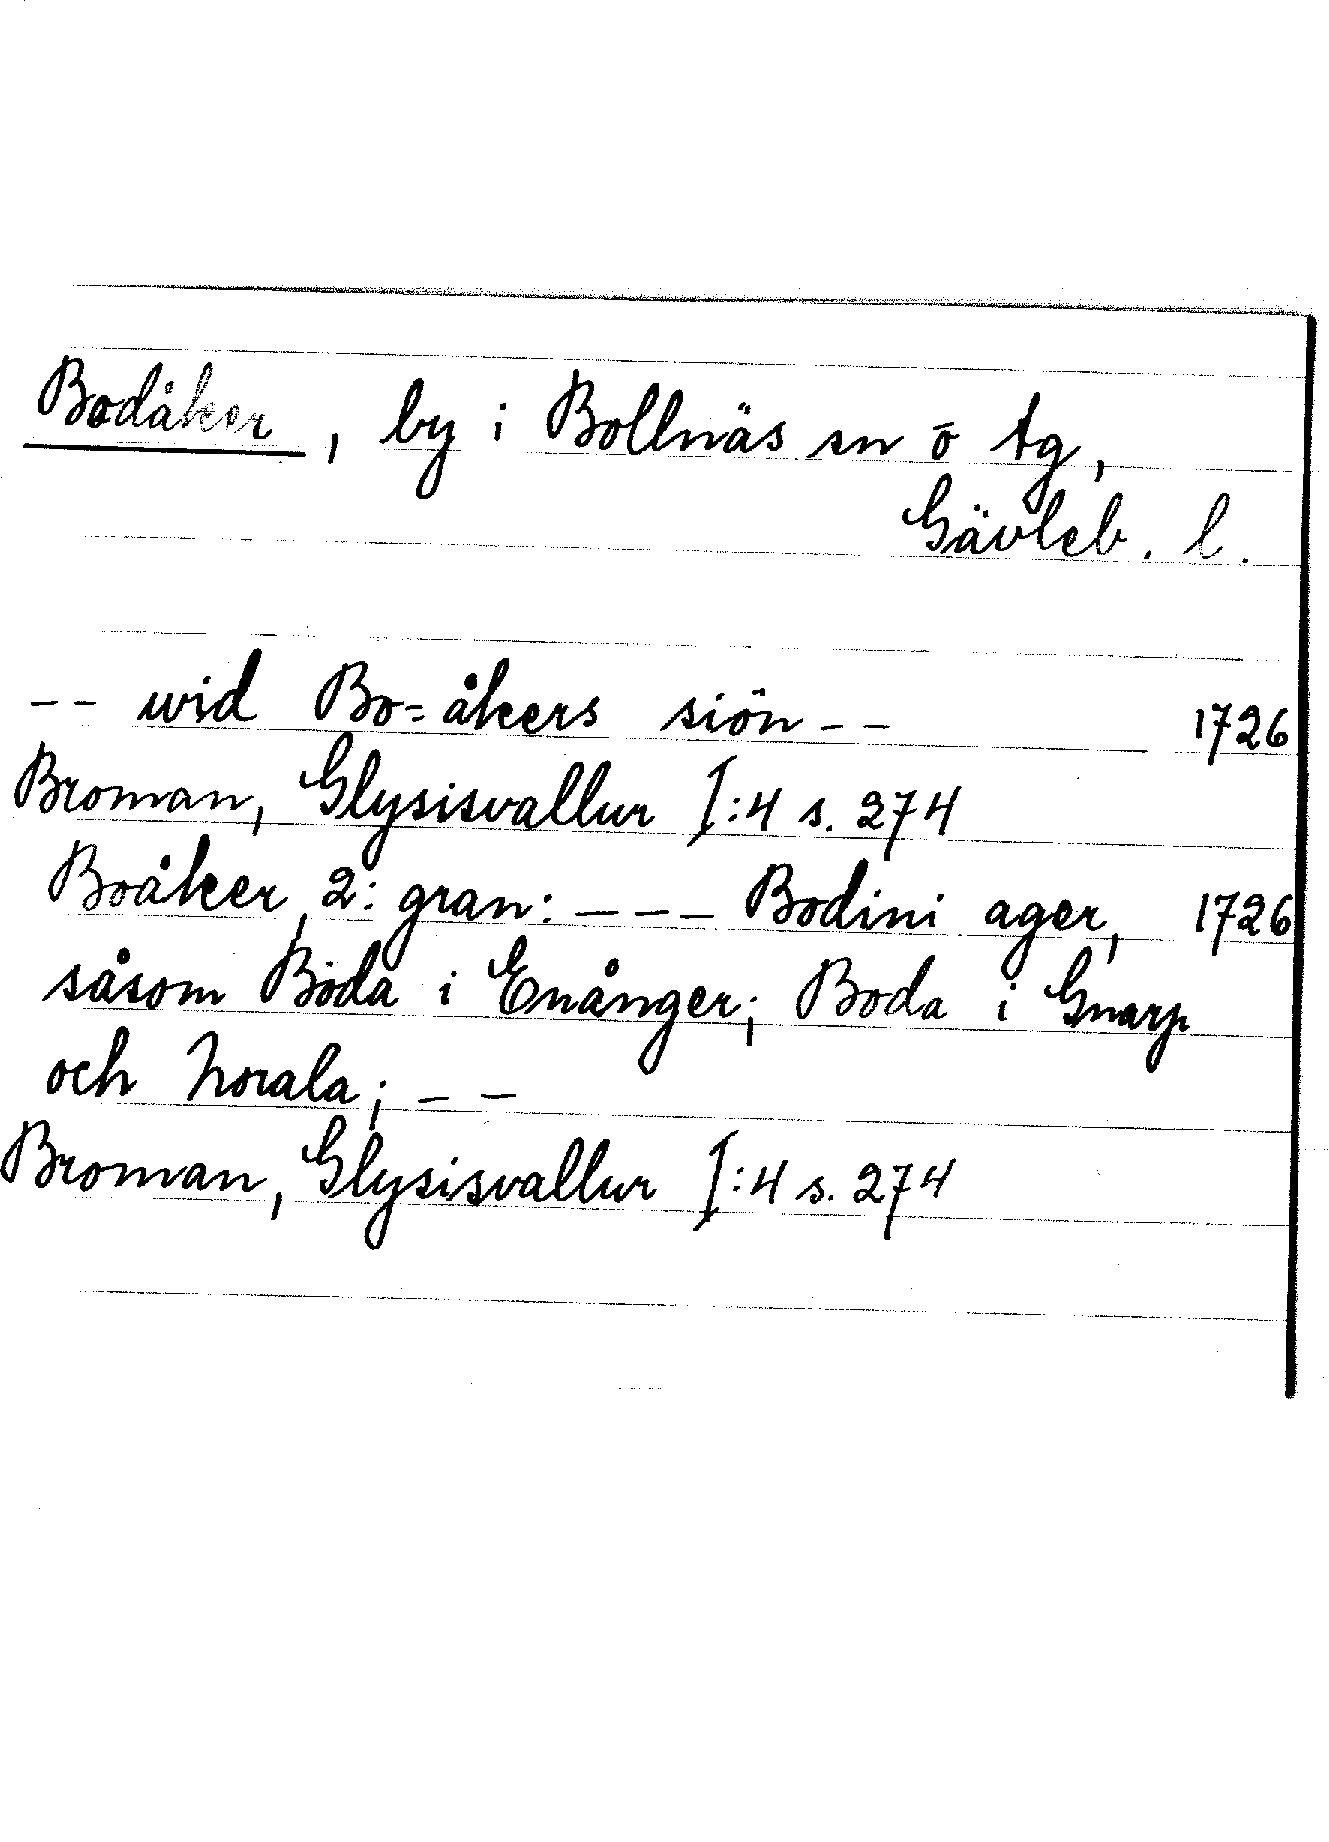 Bodåker, by i Bollnäs sn o tg,
Gävleb. l.
-- wid Bo-åkers siön -- 1726
Broman, Glysisvallur I:4 s. 274
Boåker, 2: gran: --- Bodini ager, 1726
såsom Boda i Enånger; Boda i Gnarp
och Norala; --
Broman, Glysisvallur I:4 s. 274